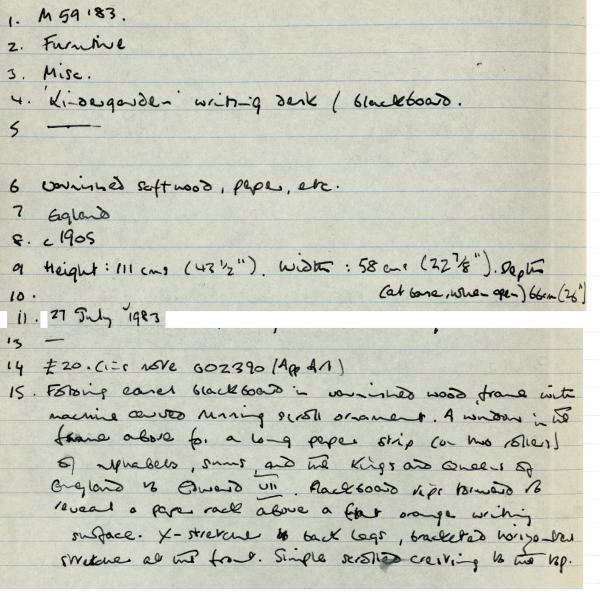 1. M 59 '83.
2. Furniture
3. Misc.
4. 'Kindergarden' writing desk / blackboard.
5 —
6 varnished softwood, paper, etc.
7 England
8. c 1905
9 Height: 111 cms (43 ½"). Width: 58 cms (22 ⅞"). Depth
10. (at base, when open) 66cm (26")
11. 27 July 1983
13 —
14 £20. note GO2390 (App
15. Folding easel blackboard in varnished wood, frame with
machine carved running scroll ornament. A window in the
frame above for a long paper strip (on two rollers)
of alphabets, sums, and the Kings and Queens of
England to Edward VII. Blackboard tips forward to
reveal a paper rack above a flat orange writing
surface. X-stretcher to back legs, bracketed horizontal
stretcher at the front. Simple scrolled cresting to the top.